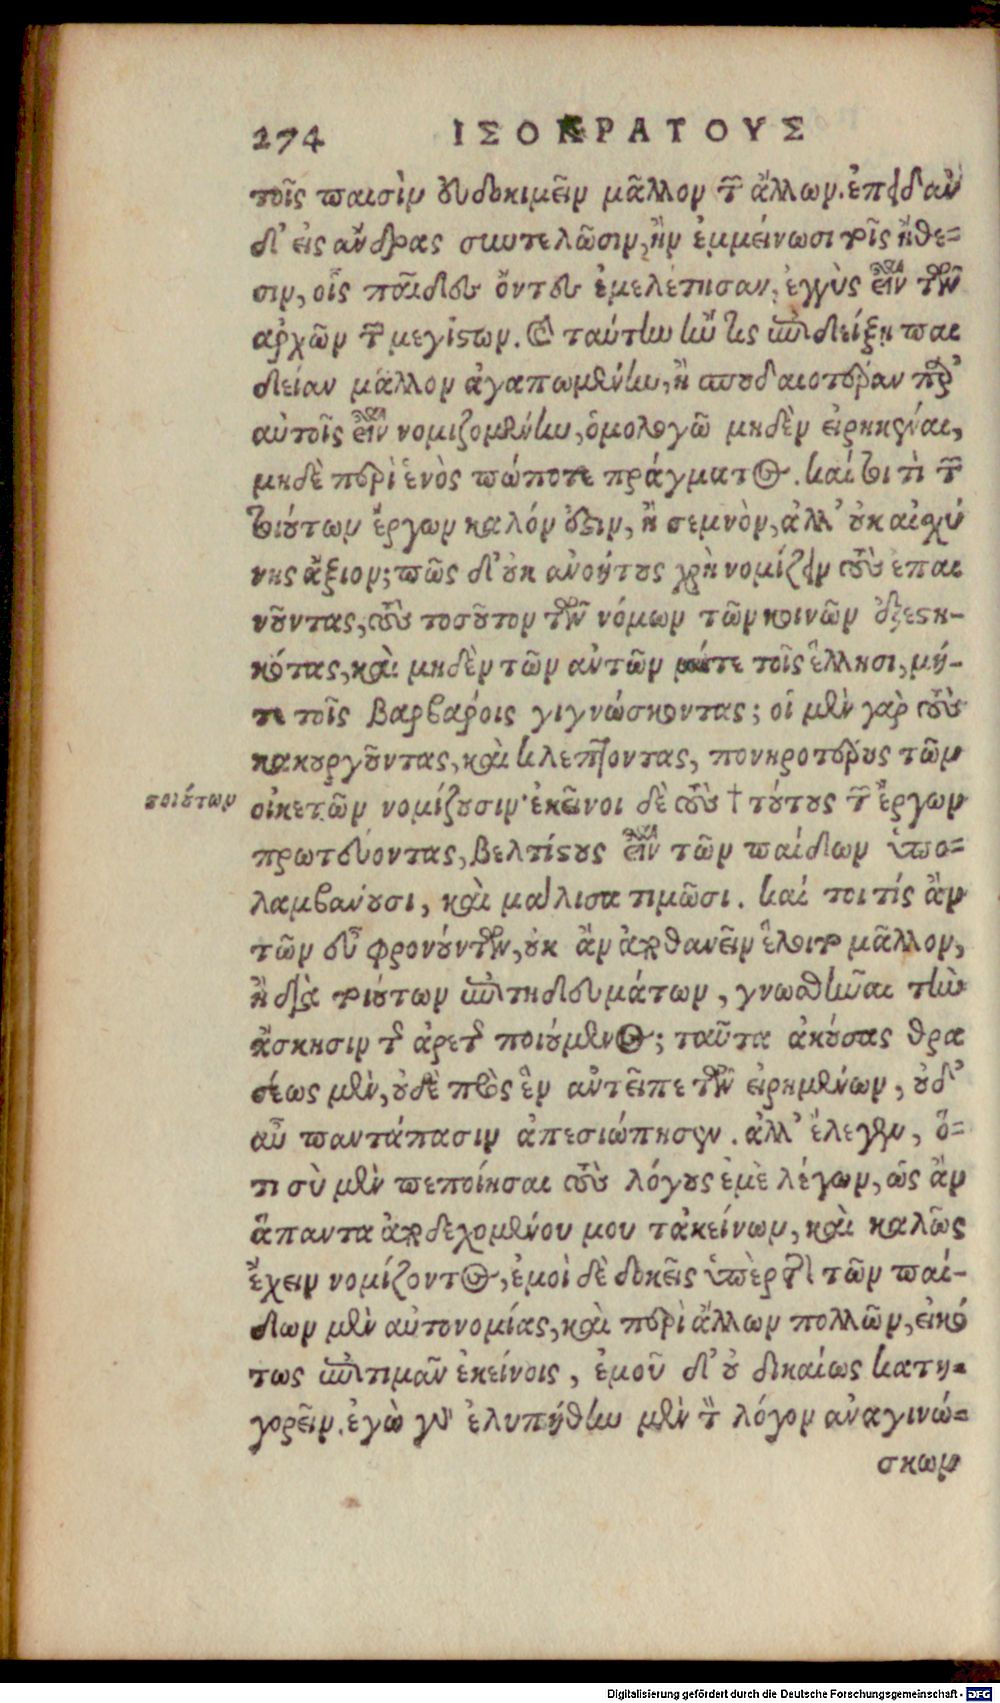 274 ΙΣΟΚΡΑΤΟΥΣ
τοῖς παισὶν εὐδοκιμεῖν μᾶλλον τῶν ἄλλων. ἐπειδὰν
δ' εἰς ἄνδρας συντελῶσιν, ἢν ἐμμείνωσι τοῖς ἤθε-
σιν, οἷς παῖδες ὄντες ἐμελέτησαν, ἐγγὺς εἶναι τῶν
ἀρχῶν τῶν μεγίστων. καὶ ταύτην ἤν τις ἐπιδείξῃ παι
δείαν μᾶλλον ἀγαπωμένην, ἢ σπουδαιοτέραν παρ'
αὐτοῖς εἶναι νομιζομένην, ὁμολογῶ μηδὲν εἰρηκέναι,
μηδὲ περὶ ἑνὸς πώποτε πράγματος. καίτοι τὶ τῶν
τοιούτων ἔργων καλόν ἐστιν, ἢ σεμνὸν, ἀλλ' οὐκ αἰσχύ
νης ἄξιον; πῶς δ' οὐκ ἀνοήτους χρὴ νομίζειν τοὺς ἐπαι
νοῦντας, τοὺς τοσοῦτον τῶν νόμων τῶν κοινῶν ἐξεστη-
κότας, καὶ μηδὲν τῶν αὐτῶν μήτε τοῖς ἕλλησι, μή-
τε τοῖς βαρβάροις γιγνώσκοντας; οἱ μὲν γὰρ τοὺς
κακουργοῦντας, καὶ κλέπτοντας, πονηροτέρους τῶν
ποιούτων
οἰκετῶν νομίζουσιν· ἐκεῖνοι δὲ τοὺς † τούτους τῶν ἔργων
πρωτεύοντας, βελτίστους εἶναι τῶν παίδων ὑπο-
λαμβάνουσι, καὶ μάλιστα τιμῶσι. καί τοι τίς ἂν
τῶν εὖ φρονούντων, οὐκ ἂν ἀποθανεῖν ἕλοιτο μᾶλλον,
ἢ διὰ τοιούτων ἐπιτηδευμάτων, γνωσθῆναι τὴν
ἄσκησιν τῆς ἀρετῆς ποιούμενος; ταῦτα ἀκούσας θρα
σέως μὲν, οὐδὲ πρὸς ἓν ἀντεῖπε τῶν εἰρημένων, οὐδ'
αὖ παντάπασιν ἀπεσιώπησεν. ἀλλ' ἔλεγεν, ὅ-
τι σὺ μὲν πεποίησαι τοὺς λόγους ἐμὲ λέγων, ὡς ἂν
ἅπαντα ἀποδεχομένου μου τἀκείνων, καὶ καλῶς
ἔχειν νομίζοντος, ἐμοὶ δὲ δοκεῖς ὑπὲρ τῆς τῶν παί-
δων μὲν αὐτονομίας, καὶ περὶ ἄλλων πολλῶν, εἰκό
τως ἐπιτιμᾶν ἐκείνοις, ἐμοῦ δ' οὐ δικαίως κατη-
γορεῖν. ἐγὼ γὰρ ἐλυπήθην μὲν τὸν λόγον ἀναγινώ-
σκων
Digitalisierung gefördert durch die Deutsche Forschungsgemeinschaft - DFG